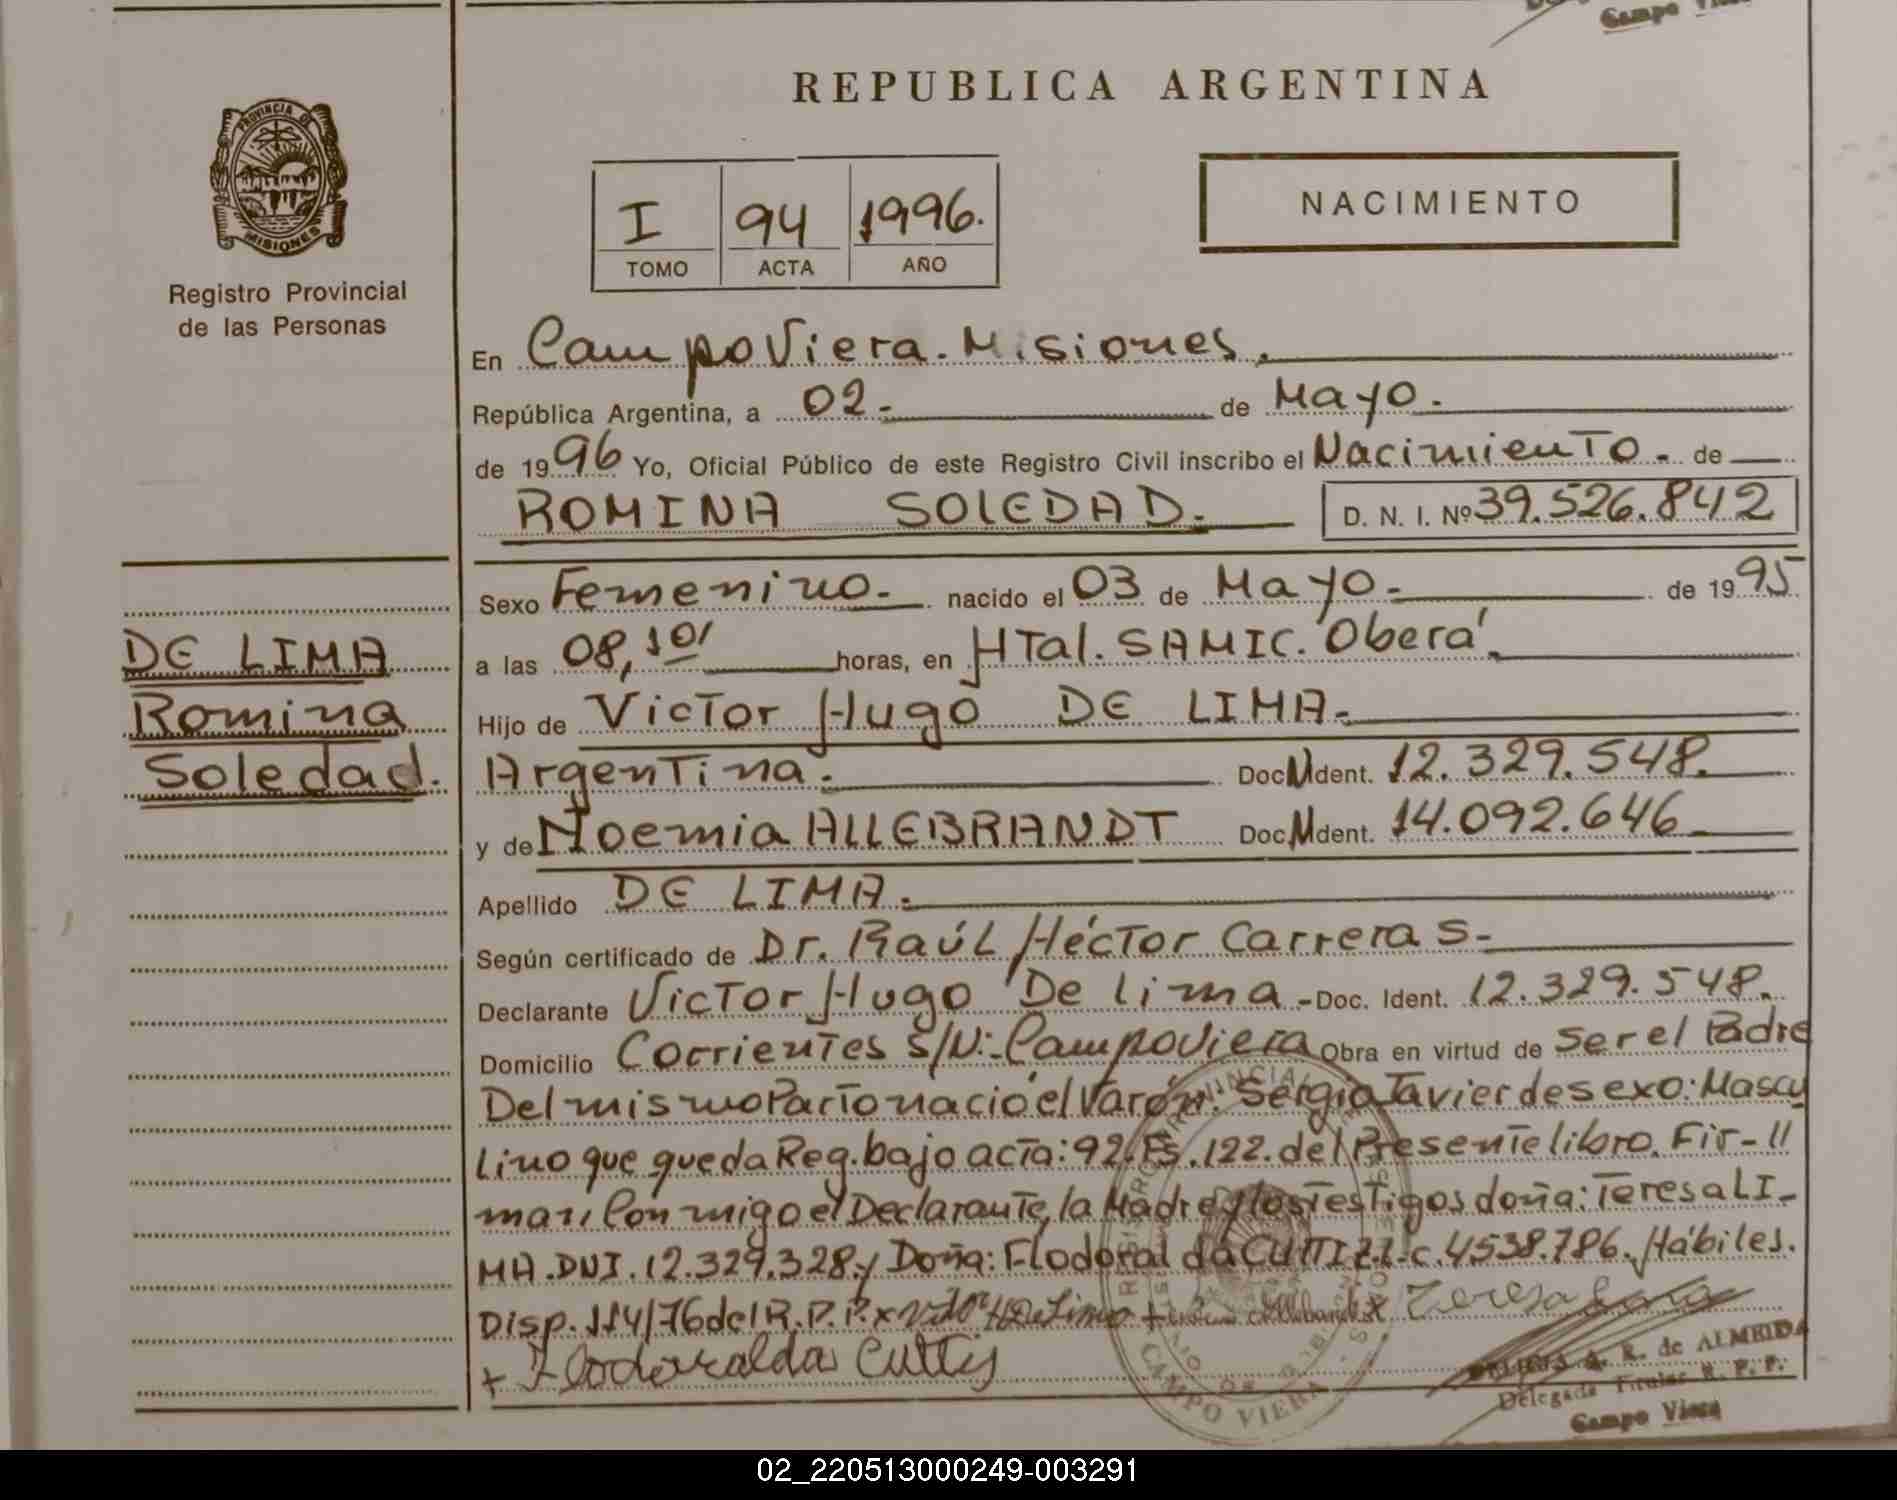 Campo Viera
REPUBLICA ARGENTINA
PROVINCIA DE
MISIONES
Registro Provincial
de las Personas
I 94 1996.
TOMO ACTA AÑO
NACIMIENTO
En Campo Viera. Misiones.
República Argentina, a 02- de Mayo.
de 1996 Yo, Oficial Público de este Registro Civil inscribo el Nacimiento. de
ROMINA SOLEDAD. D. N. I. Nº 39.526.842
Sexo Femenino. nacido el 03 de Mayo. de 1995
DE LIMA
a las 08,10' horas, en HTal. SAMIC. Oberá.
Romina
Hijo de Victor Hugo DE LIMA.
Soledad.
Argentina. Doc. N Ident. 12.329.548.
y de Noemia ALLEBRANDT Doc. N Ident. 14.092.646
Apellido DE LIMA.
Según certificado de Dr. Raúl Héctor Carreras-
Declarante Victor Hugo De Lima - Doc. Ident. 12.329.548.
Domicilio Corrientes S/N:- Campo Viera Obra en virtud de Ser el Padre
Del mismo Parto nació el Varón: Sergio Javier de sexo: Mascu
Lino que queda Reg. bajo acta: 92. Fs. 122. del Presente libro. Fir-//
man, Con migo el Declarante, la Madre y los Testigos doña: Teresa LI-
MA. DNI. 12.329.328. y Doña: Flodoralda CUTTI Z.L.c. 4.538.786. Hábiles.
Disp. 114/76 del R.P.P. x Victor H De Lima + Allebrandt x Teresa Lima
+ Flodoralda Cutty
A. R. de ALMEIDA
Delegada Titular R. P. P.
Campo Viera
CAMPO VIERA
02_220513000249-003291